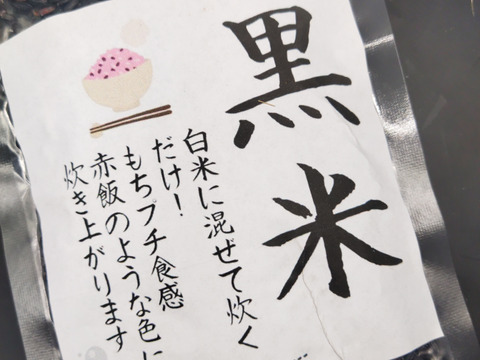 黒米
白米に混ぜて炊く
だけ！
もちプチ食感
赤飯のような色に
炊き上がります